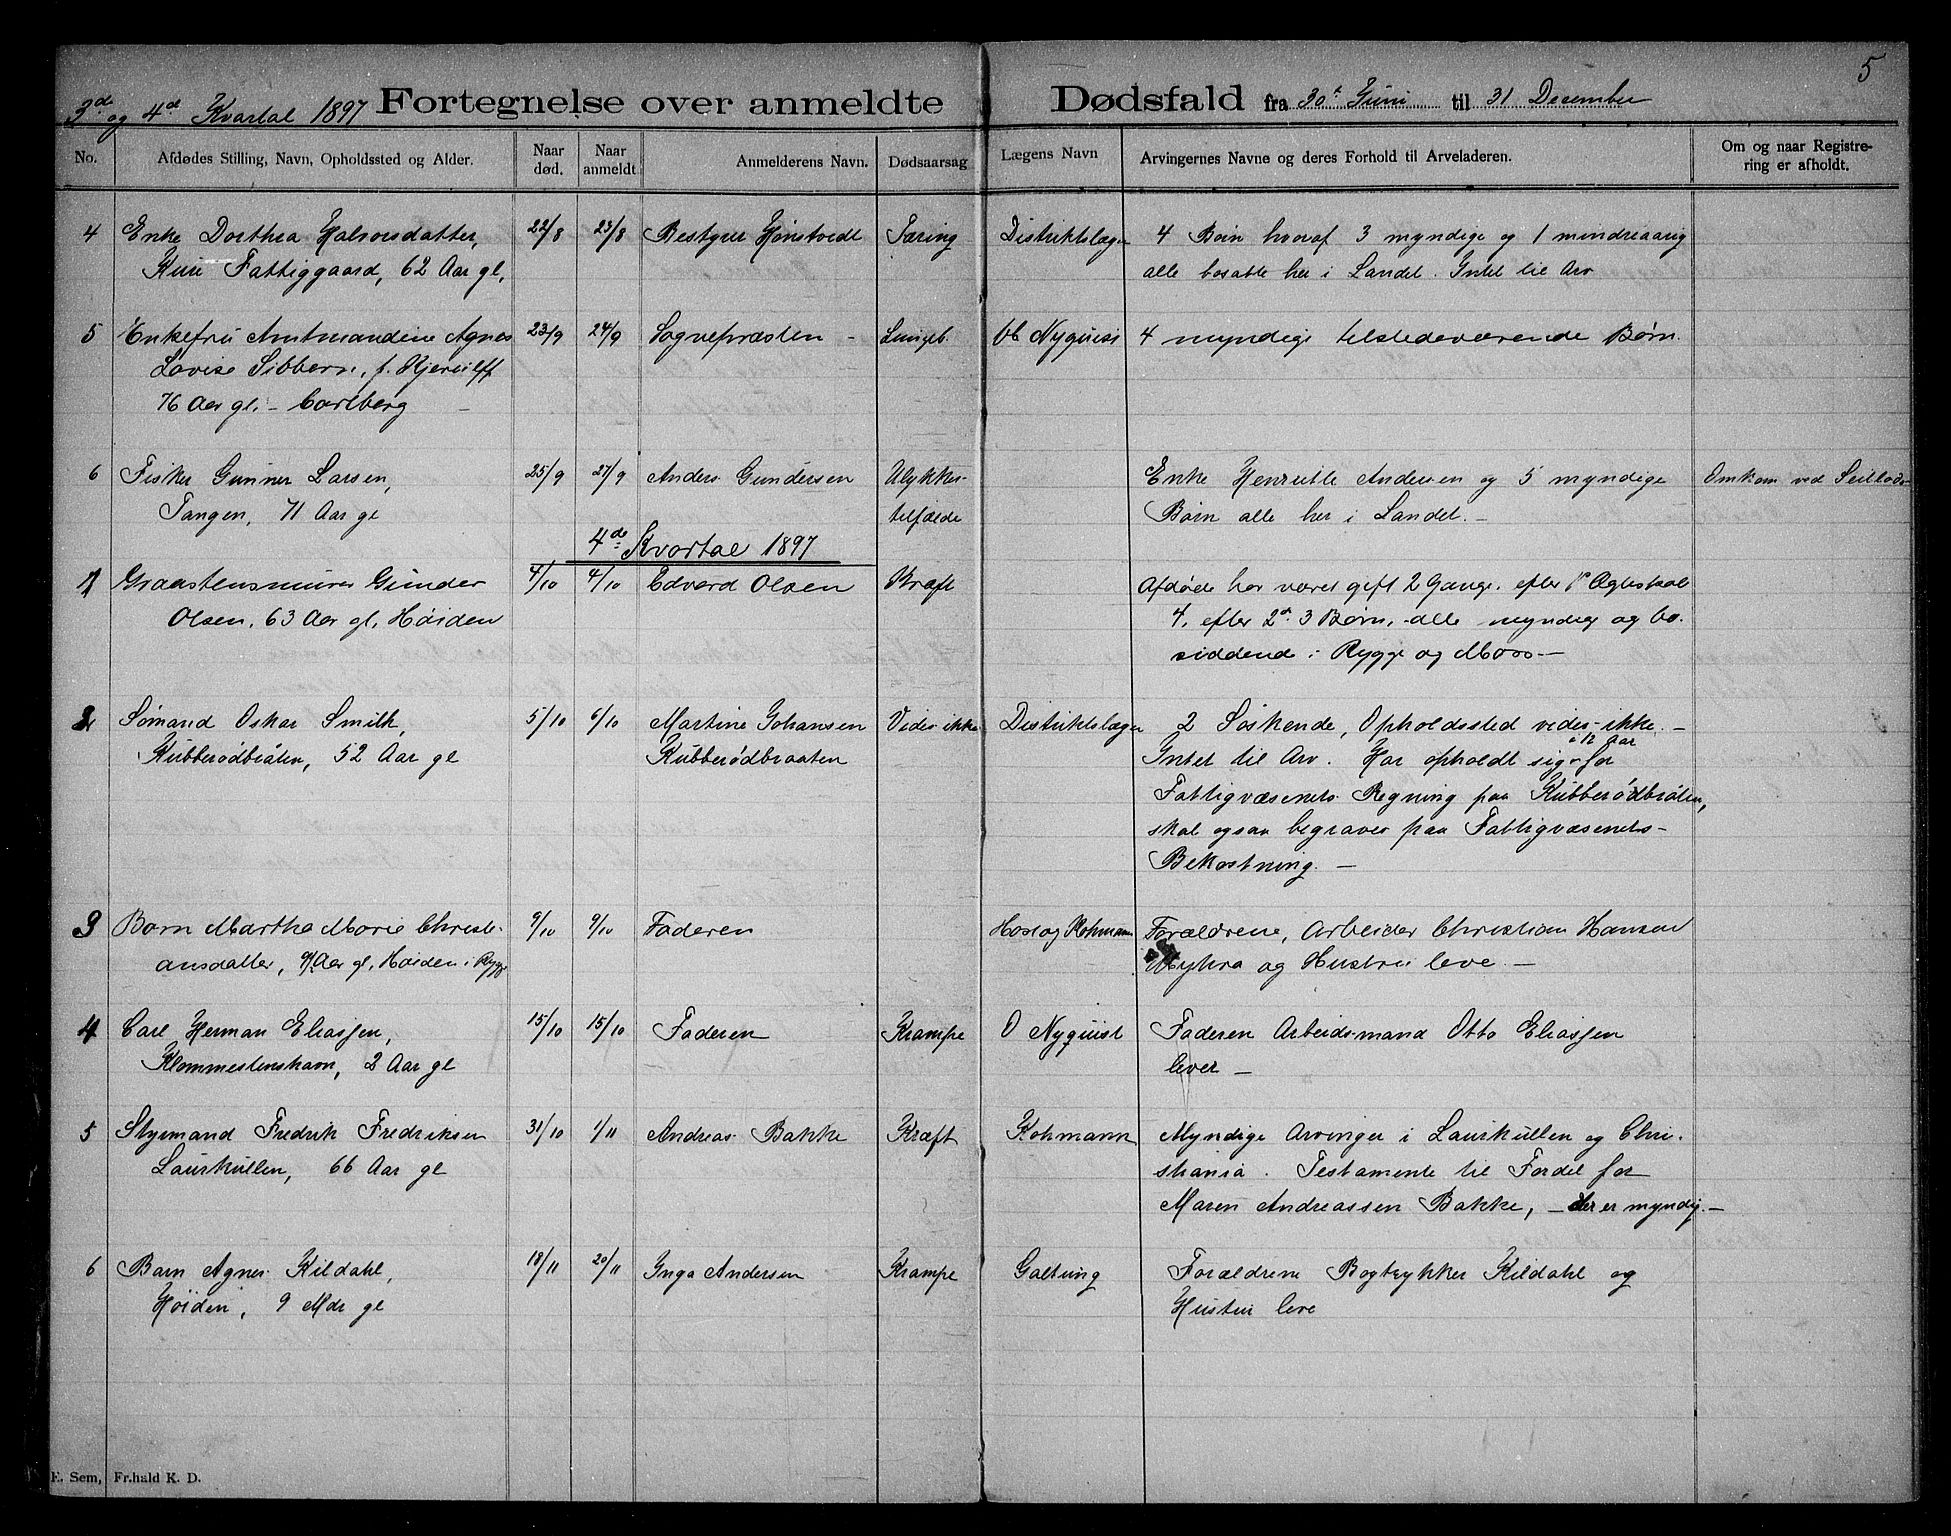 5
3de og 4de Kvartal 1897 Fortegnelse over anmeldte Dødsfald fra 30te Juni til 31 December
No. Afdødes Stilling, Navn, Opholdssted og Alder. Naar død. Naar anmeldt Anmelderens Navn. Dødsaarsag Lægens Navn Arvingernes Navne og deres Forhold til Arveladeren. Om og naar Registre-
ring er afholdt.
4 Enke Dorthea Halvorsdatter, 22/8 23/8 Bestyrer Hønstvedt Tæring Distriktslægen 4 Børn hvoraf 3 myndige og 1 mindreaarig
Kure Fattiggaard, 62 Aar gl, alle bosatte her i Landet. Intet til Arv
5 Enkefru Amtmandinde Agnes 23/9 24/9 Sognepræsten - Lungeb. Nyquist 4 myndige tilstedeværende Børn.
Lovise Sibbern, f. Kjerulff
76 Aar gl. - Carlberg -
6 Fisker Gunner Larsen, 25/9 27/9 Anders Gundersen Ulykkes- Enke Henriette Andersen og 5 myndige Omkom ved Seilbaads-
Tangen, 71 Aar gl tilfælde Børn alle her i Landet. -
4de Kvartal 1897
1 Graastensmurer Gunder 4/10 4/10 Edvard Olsen Kræft Afdøde har været gift 2 Gange. efter 1ste Ægteskab
Olsen, 63 Aar gl, Høiden 4, efter 2det 3 Børn, alle myndige og bo-
siddende i Rygge og Moss -
2 Sømand Oskar Smith, 5/10 6/10 Martine Johansen Vides ikke Distriktslægen 2 Søskende, Opholdssted vides ikke. -
Kubberødbråten, 52 Aar gl Kubberødbraaten Intet til Arv. Har opholdt sig i 12 Aar for
Fattigvæsenets Regning paa Kubberødbråten,
skal ogsaa begraves paa Fattigvæsenets
Bekostning. -
3 Barn Martha Marie Christi- 9/10 9/10 Faderen Kohmann Forældrene, Arbeider Christian Hansen
ansdatter, Aar gl, Høiden i Rygge Myhra og Hustru leve. -
4 Carl Herman Eliassen, 15/10 15/10 Faderen Krampe O Nyquist Faderen Arbeidsmand Otto Eliassen
Klommestenshavn, 2 Aar gl lever -
5 Styrmand Fredrik Fredriksen 31/10 1/11 Andreas Bakke Kræft Kohmann Myndige Arvinger i Laurkullen og Chri-
Laurkullen, 66 Aar gl stiania. Testamente til Fordel for
Maren Andreassen Bakke, - der er myndig. -
6 Barn Agnes Kildahl, 18/11 20/11 Inga Andersen Krampe Galtung Forældrene Bogtrykker Kildahl og
Høiden, 9 Mdr gl Hustru leve
E. Sem, Fr.hald K. D.